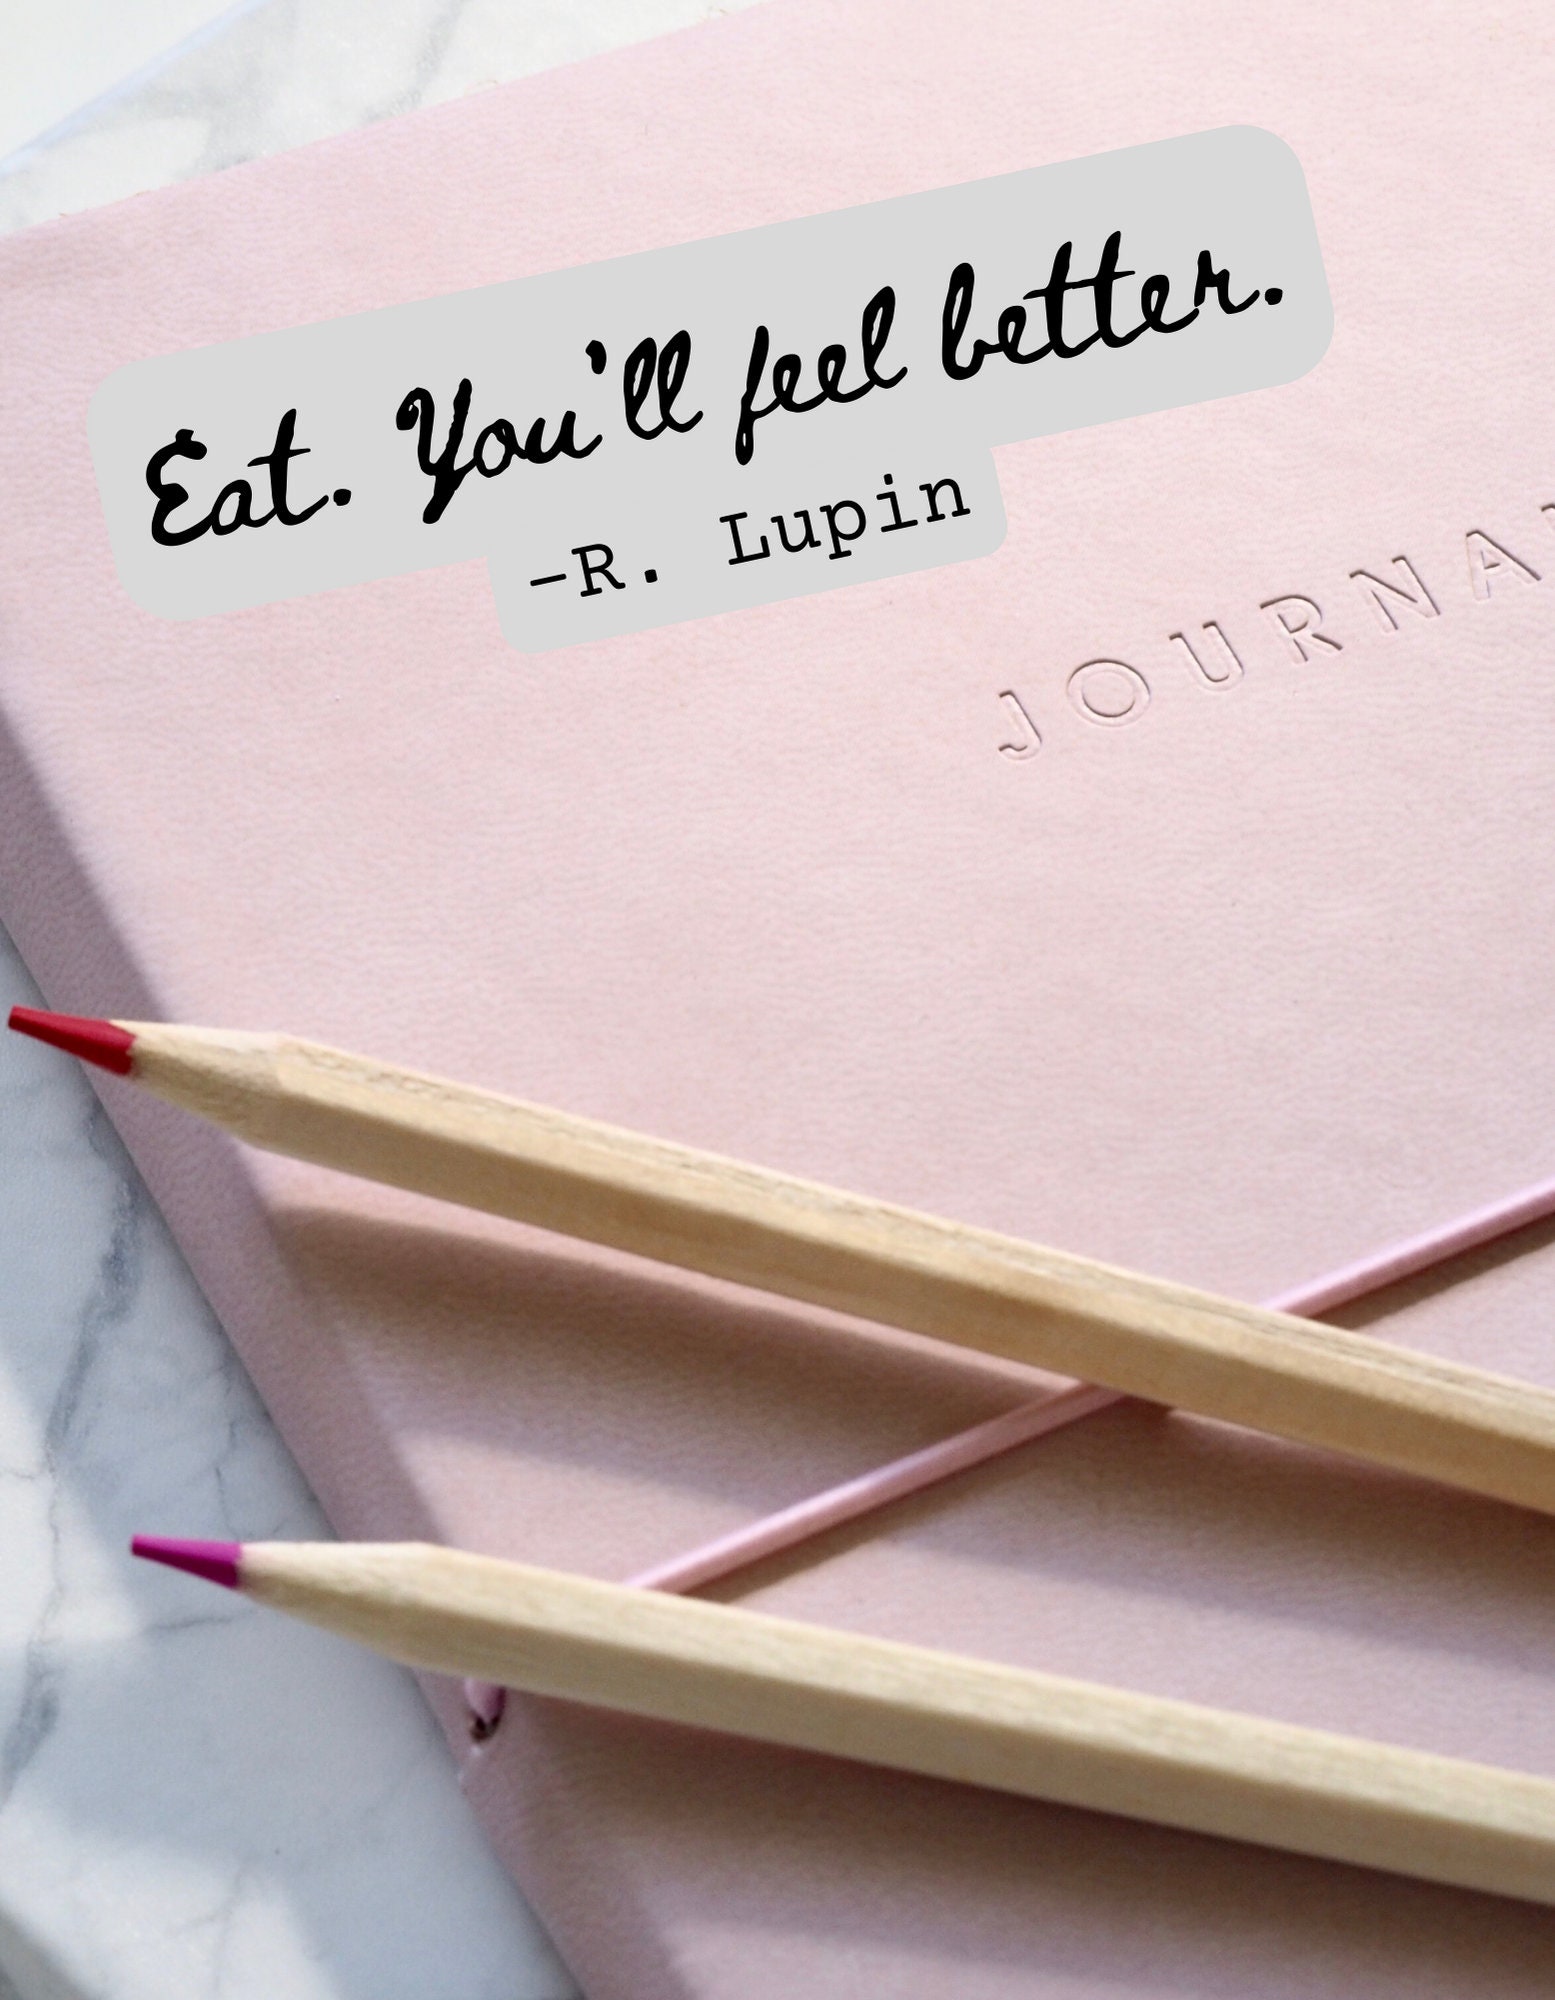 Eat. You'll feel better.
-R. Lupin
JOURNA